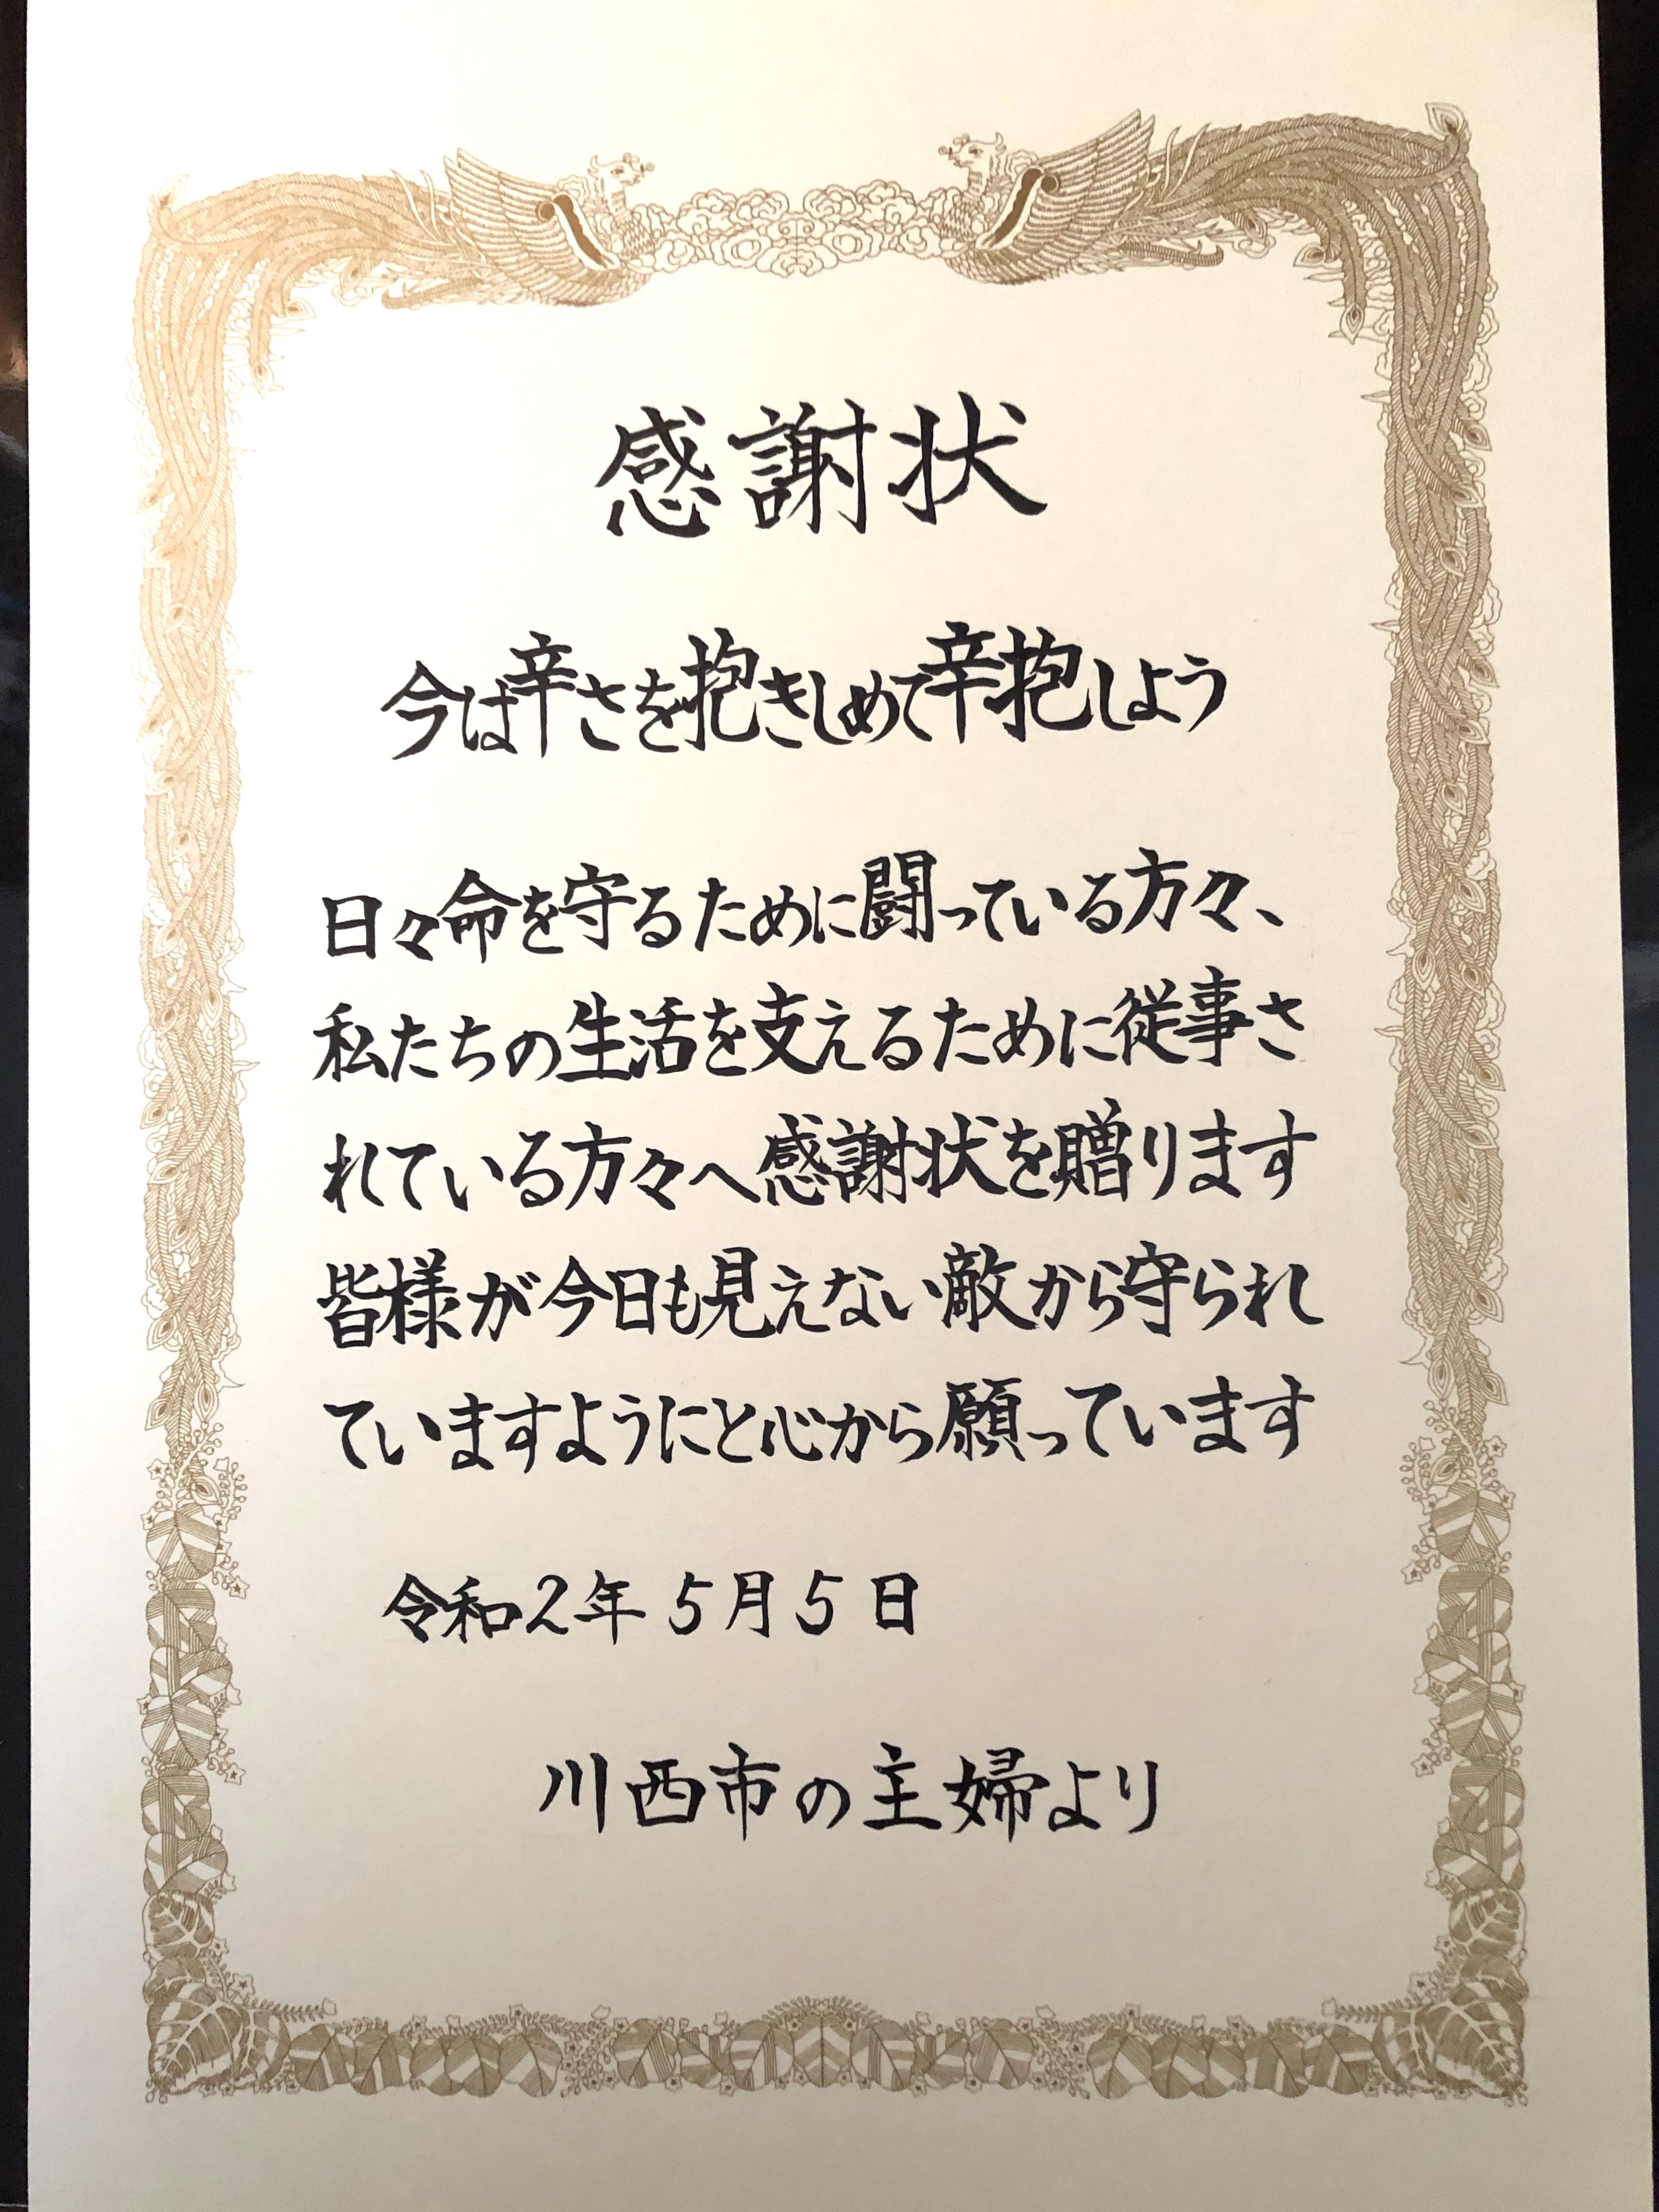 感謝状
今は辛さを抱きしめて辛抱しよう
日々命を守るために闘っている方々、
私たちの生活を支えるために従事さ
れている方々へ感謝状を贈ります
皆様が今日も見えない敵から守られ
ていますようにと心から願っています
令和2年5月5日
川西市の主婦より